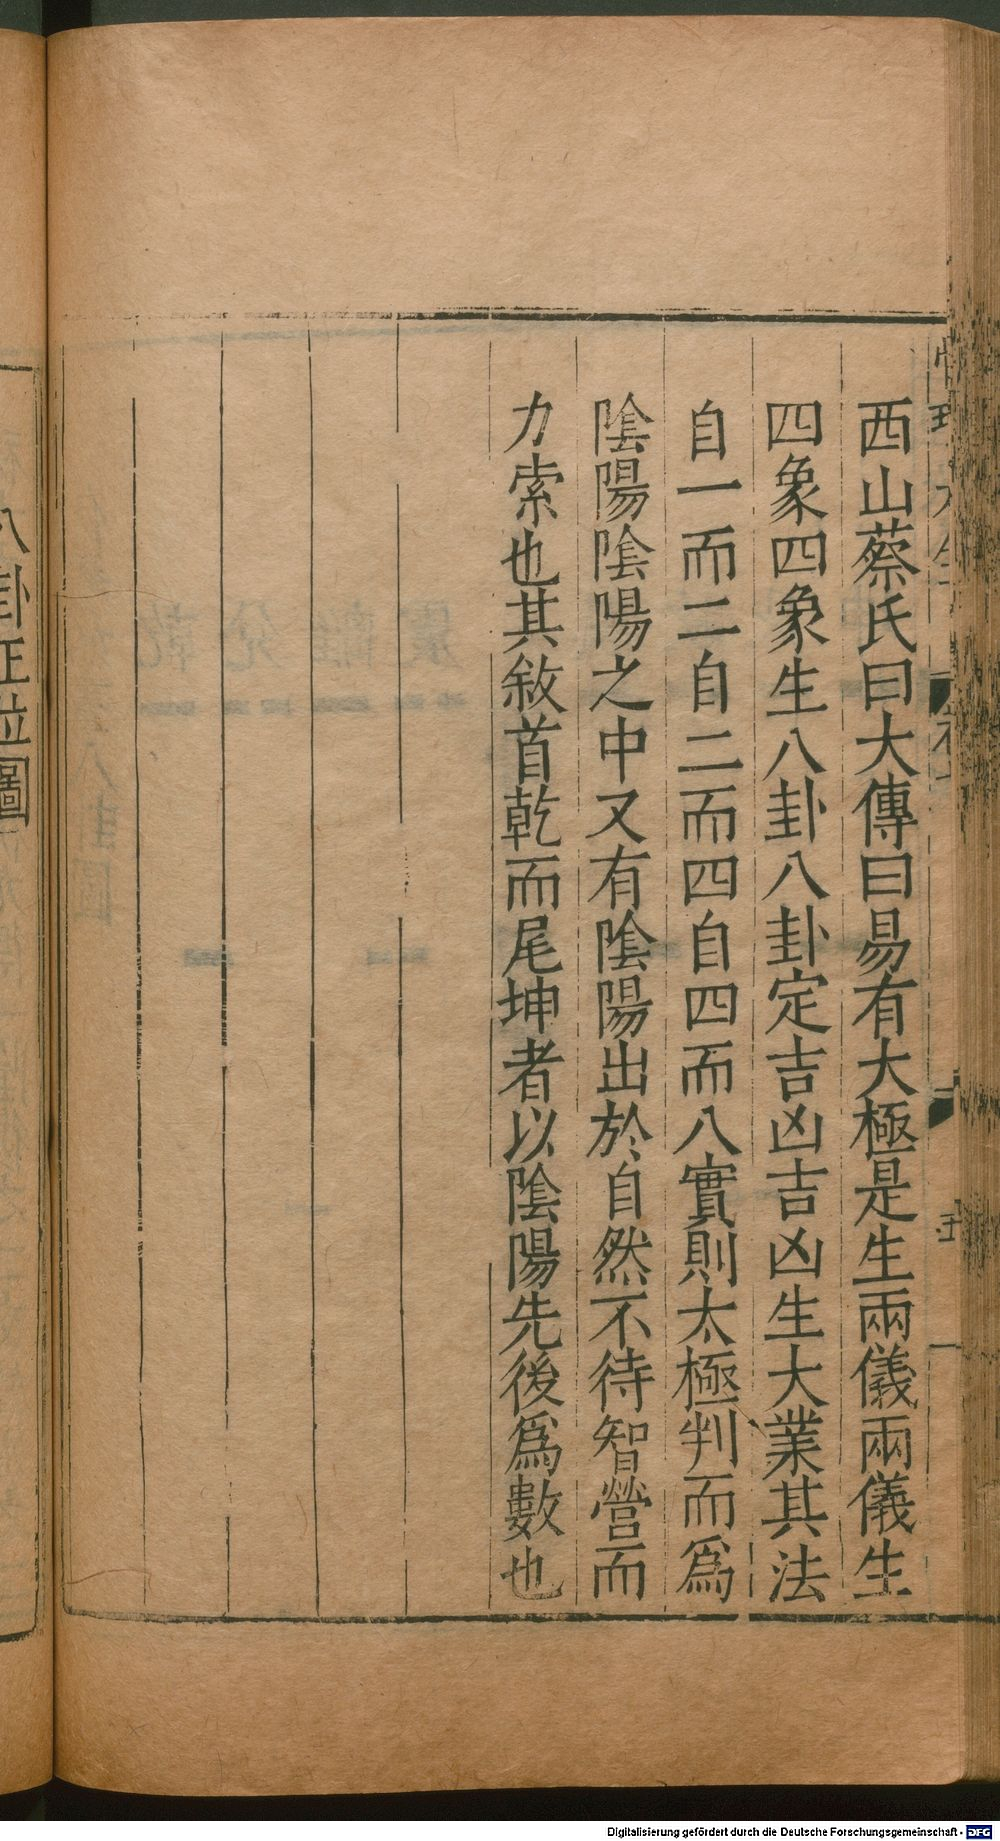 西山蔡氏曰大傳曰易有大極是生兩儀兩儀生
四象四象生八卦八卦定吉凶吉凶生大業其法
自一而二自二而四自四而八實則太極判而爲
陰陽陰陽之中又有陰陽出於自然不待智營而
力索也其敘首乾而尾坤者以陰陽先後爲數也
八卦正位圖
Digitalisierung gefördert durch die Deutsche Forschungsgemeinschaft - DFG